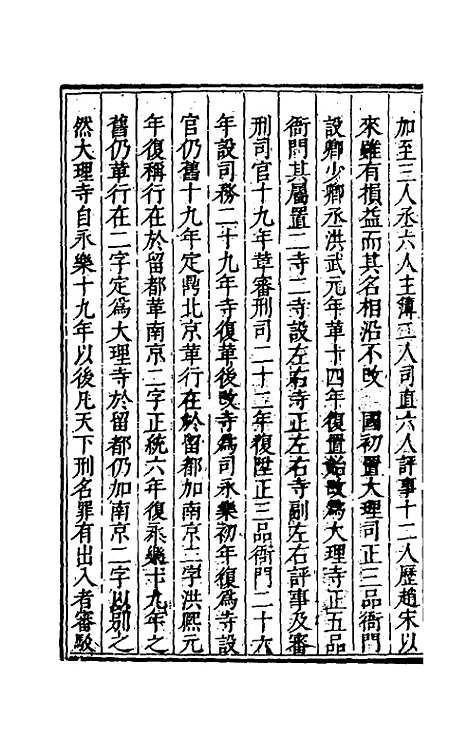 加至三人丞六人主簿二人司直六人評事十二人歷趙宋以
來雖有損益而其名相沿不改　國初置大理司正三品衙門
設卿少卿丞洪武元年革十四年復置始改爲大理寺正五品
衙門其屬置二寺二寺設左右寺正左右寺副左右評事及審
刑司官十九年革審刑司二十三年復陞正三品衙門二十六
年設司務二十九年寺復革後改寺爲司永樂初年復爲寺設
官仍舊十九年定鼎北京革行在於留都加南京二字洪熙元
年復稱行在於留都革南京二字正統六年復永樂十九年之
舊仍革行在二字定爲大理寺於留都仍加南京二字以別之
然大理寺自永樂十九年以後凡天下刑名罪有出入者審駁